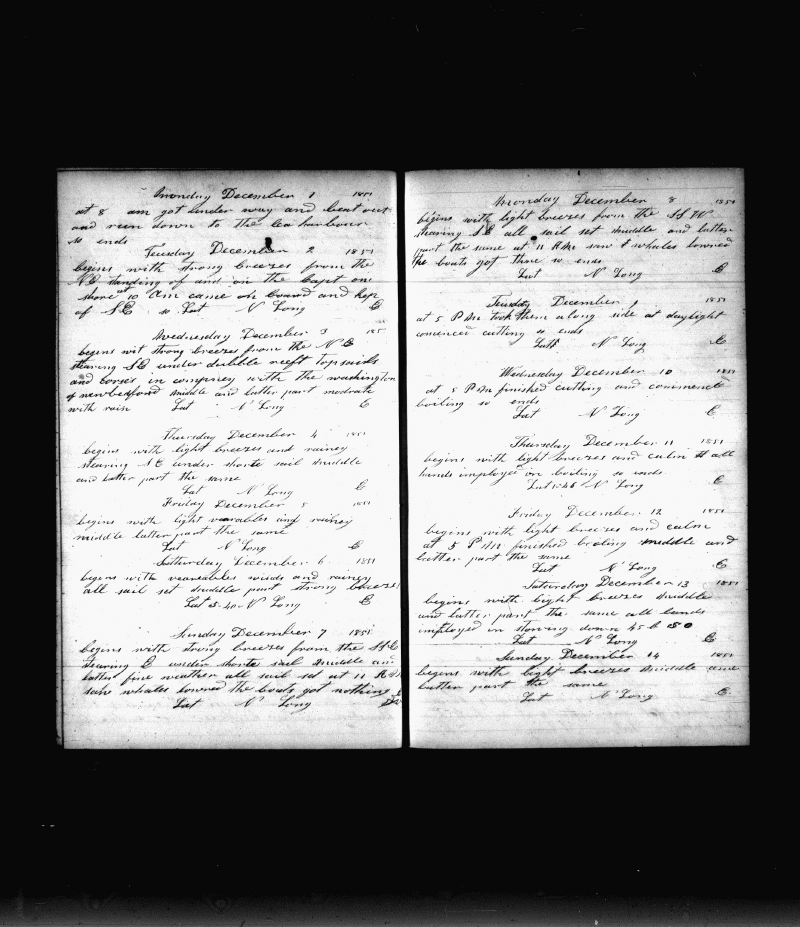 Monday December 1 1851
at 8 am got under way and beat out
and run down to the lea harbour
so ends
Tuesday December 2 1851
begins with strong breezes from the
NE standing of and on the Capt on
shore at 10 am came on board and kep
of SE so Lat N Long E
Wednesday December 3 185
begins wit strong breezes from the NE
stearing SE under dubble reeft topsails
and corses in compney with the washington
of newbedford middle and latter part modrate
with rain Lat N Long E
Thursday December 4 1851
begins with light breezes and rainey
stearing SE under shorte sail middle
and latter part the same
Lat N Long E
Friday December 5 1851
begins with light vearables and rainey
middle latter part the same
Lat N Long E
Saturday December 6 1851
begins with veareables winds and rainey
all sail set middle part strong breezes
Lat 5.40 N Long E
Sunday December 7 1851
begins with strong breezes from the SSE
stearing E under shorte sail middle an
latter fine weather all sail set at 11 AM
saw whales lowred the boats got nothing
Lat N Long
Monday December 8 1851
begins with light breezes from the SSW
stearing SE all sail set middle and latter
part the same at 11 AM saw whales lowred
the boats got three so ends
Lat N Long E
Tuesday December 9 1851
at 5 PM took them along side at daylight
comenced cutting so ends
Latt N Long E
Wednesday December 10 1851
at 5 PM finished cutting and commencd
boiling so ends
Lat N Long E
Thursday December 11 1851
begins with light breezes and calm all
hands imployed in boiling so ends
Lat N Long E
Friday December 12 1851
begins with light breezes and calm
at 5 PM finished boiling middle and
latter part the same
Lat N Long E
Saturday December 13 1851
begins with light breezes middle
and latter part the same all hands
imployed in stowing down 45 b 50
Lat N Long E
Sunday December 14 1851
begins with light breezes middle and
latter part the same
Lat N Long E